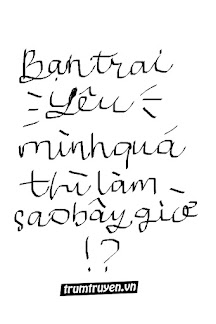 Bạn trai
yêu
mình quá
thì làm
sao bây giờ
!?
trumtruyen.vn